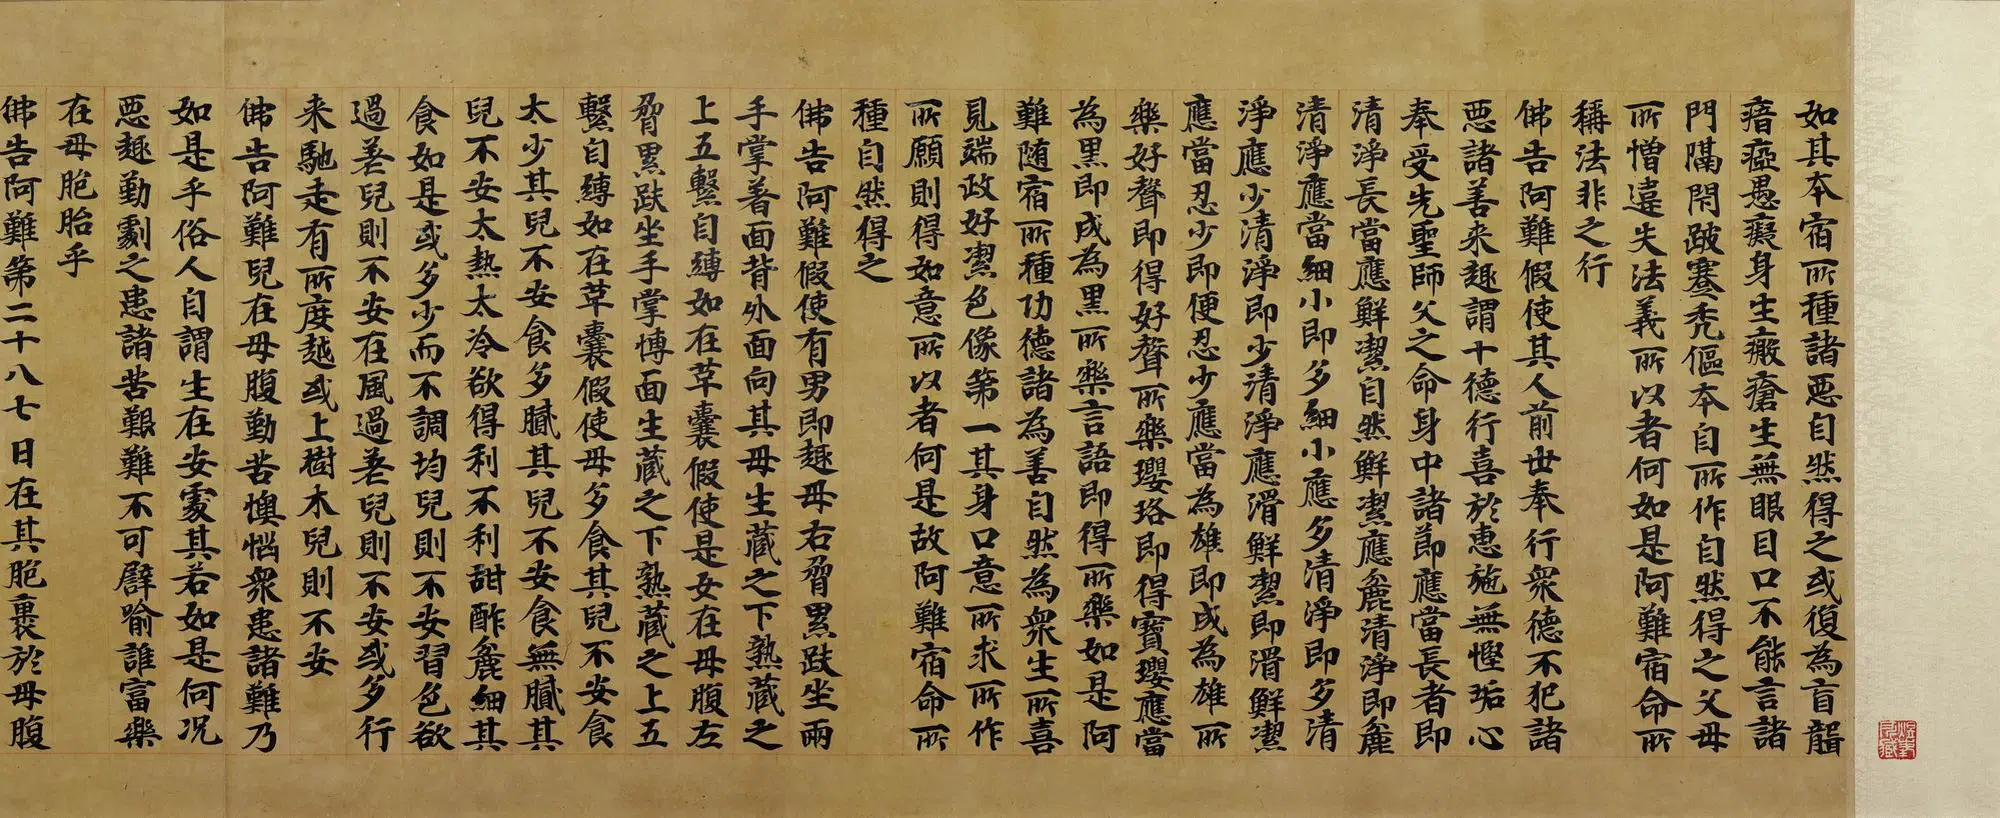 如其本宿所種諸惡自然得之或復為盲聾
瘖瘂愚癡身生瘢瘡生無眼目口不能言諸
門隔閇跛蹇禿傴本自所作自然得之父母
所憎違失法義所以者何如是阿難宿命所
稱法非之行
佛告阿難假使其人前世奉行衆德不犯諸
惡諸善来趣謂十德行喜於惠施無慳垢心
奉受先聖師父之命身中諸節應當長者即
清淨長當應鮮潔自然鮮潔應麁清淨即麁
清淨應當細小即多細小應多清淨即多清
淨應少清淨即少清淨應滑鮮潔即滑鮮潔
應當忍少即便忍少應當為雄即成為雄所
樂好聲即得好聲所樂瓔珞即得寶瓔應當
為黑即成為黑所樂言語即得所樂如是阿
難随宿所種功德諸為善自然為衆生所喜
見端政好潔色像第一其身口意所求所作
所願則得如意所以者何是故阿難宿命所
種自然得之
佛告阿難假使有男即趣母右脅累趺坐兩
手掌著面背外面向其母生藏之下熟藏之
上五繫自縛如在草囊假使是女在母腹左
脅累趺坐手掌博面生藏之下熟藏之上五
繫自縛如在草囊假使母多食其兒不安食
太少其兒不安食多膩其兒不安食無膩其
兒不安太熱太冷欲得利不利甜酢麁細其
食如是或多少而不調均兒則不安習色欲
過差兒則不安在風過差兒則不安或多行
来馳走有所度越或上樹木兒則不安
佛告阿難兒在母腹勤苦懊惱衆患諸難乃
如是乎俗人自謂生在安處其若如是何况
惡趣勤劇之患諸苦艱難不可譬喻誰當樂
在母胞胎乎
佛告阿難第二十八七日在其胞裏於母腹